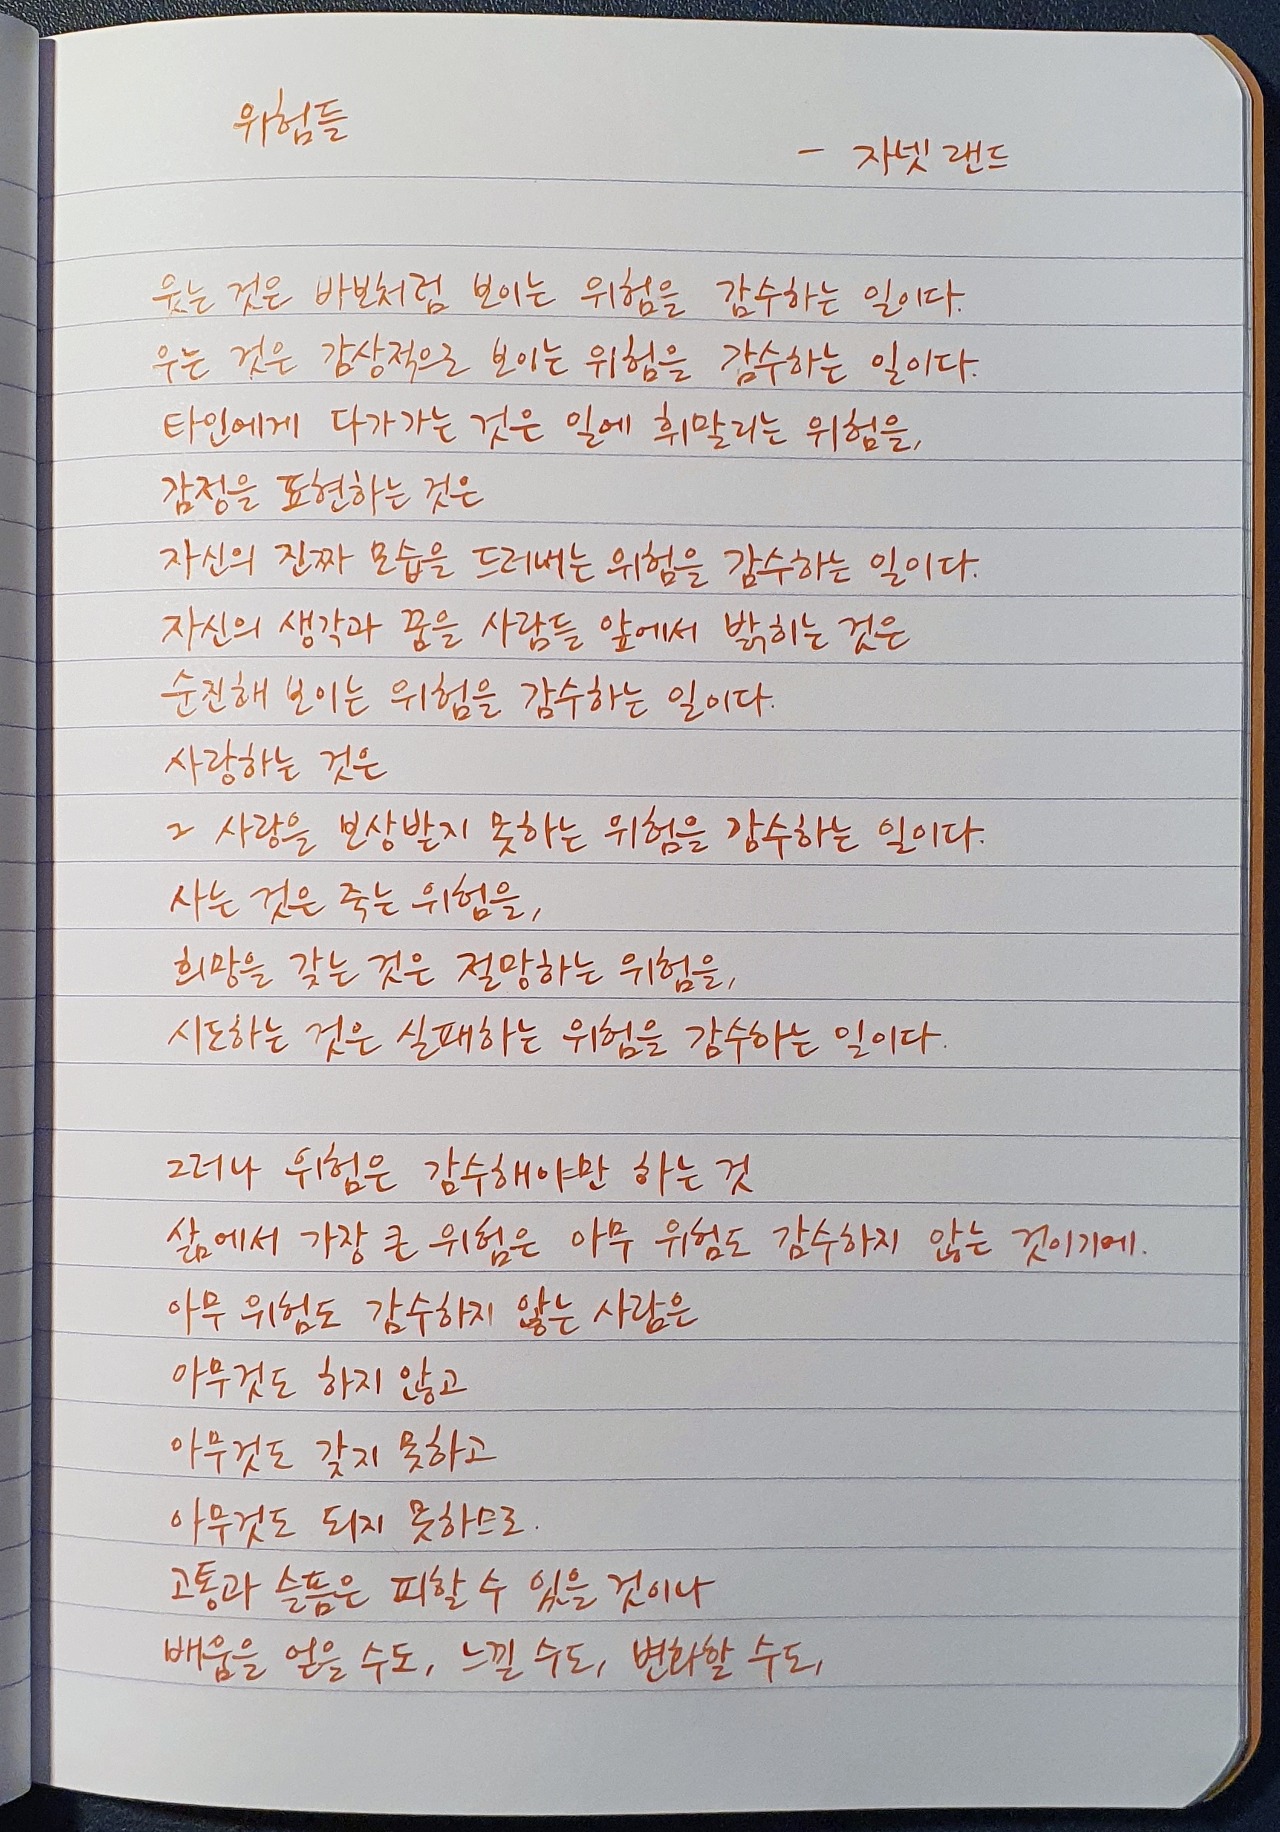 위험들
- 자넷 랜드
웃는 것은 바보처럼 보이는 위험을 감수하는 일이다.
우는 것은 감상적으로 보이는 위험을 감수하는 일이다.
타인에게 다가가는 것은 일에 휘말리는 위험을,
감정을 표현하는 것은
자신의 진짜 모습을 드러내는 위험을 감수하는 일이다.
자신의 생각과 꿈을 사람들 앞에서 밝히는 것은
순진해 보이는 위험을 감수하는 일이다.
사랑하는 것은
그 사랑을 보상받지 못하는 위험을 감수하는 일이다.
사는 것은 죽는 위험을,
희망을 갖는 것은 절망하는 위험을,
시도하는 것은 실패하는 위험을 감수하는 일이다.
그러나 위험은 감수해야만 하는 것
삶에서 가장 큰 위험은 아무 위험도 감수하지 않는 것이기에.
아무 위험도 감수하지 않는 사람은
아무것도 하지 않고
아무것도 갖지 못하고
아무것도 되지 못하므로.
고통과 슬픔은 피할 수 있을 것이나
배움을 얻을 수도, 느낄 수도, 변화할 수도,